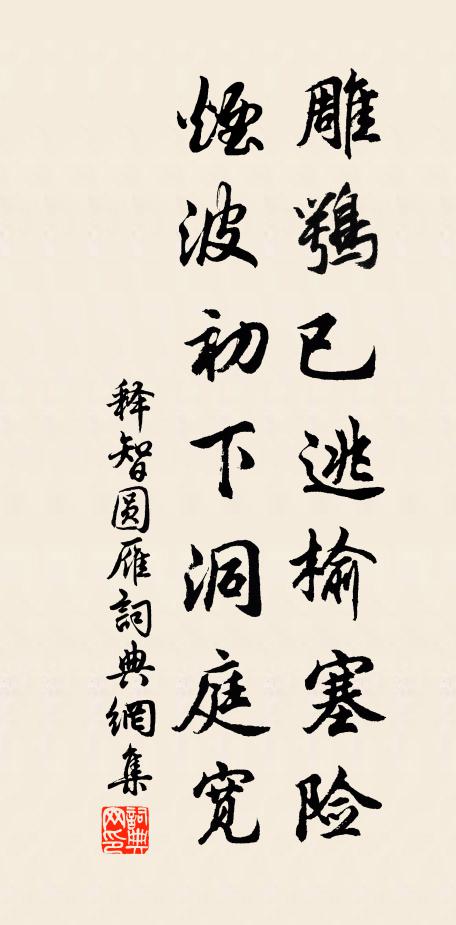 雕鹗已逃榆塞险
煙波初下洞庭寬
释智圆雁詞典網集
詞典网印